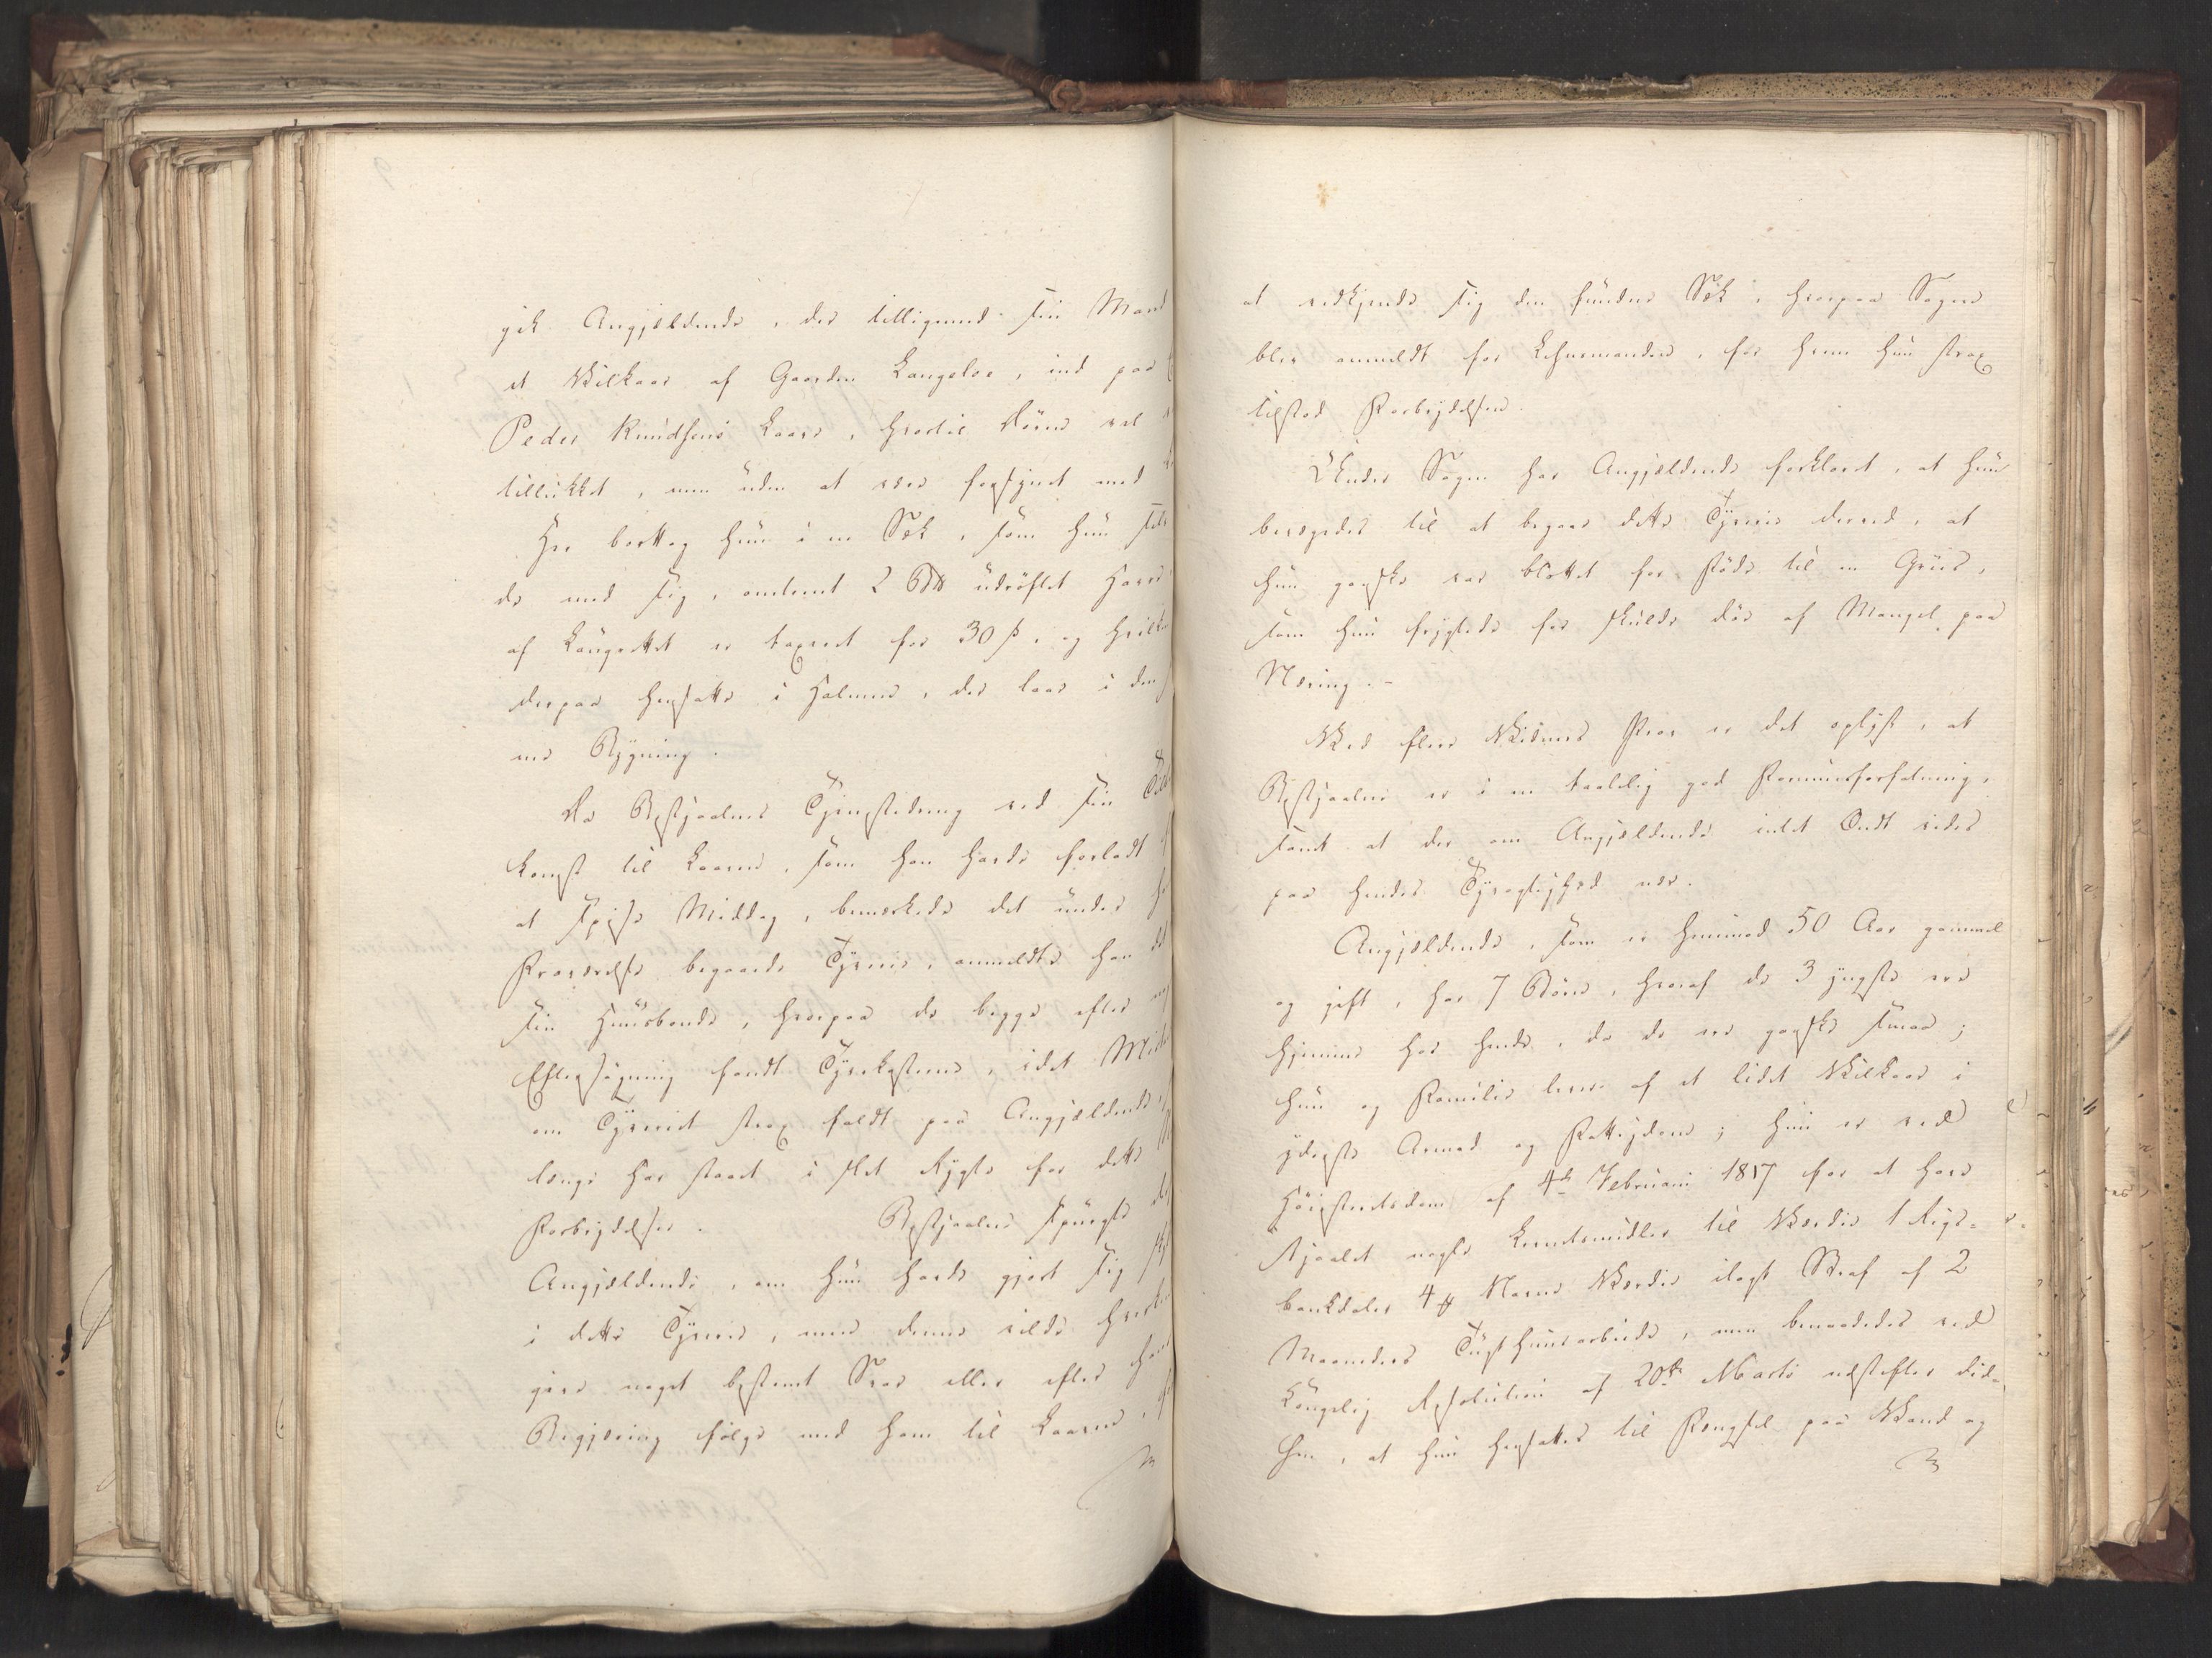 gik Angjældende, der tilligemed sin Mand
et Vilkaar af Gaarden Langeloe, ind paa
Peder Knudsens Laave, hvortil Døren vel
tillukket, men uden at være forsynet med
Her borttog hun i en Sæk, som hun
de med sig, omtrent 2 udrøftet Havre
af Laugrettet er taxeret for 30 ß, og
derpaa hensatte i Halmen, der laae i den
ne Bygning.
Da Bestjaalnes Tjenestedreng ved sin
komst til Laaven, som han havde forladt
at spise Middag, bemærkede det under
Fraværelse begaaede Tyverie, anmeldte han det
sin Huusbonde, hvorpaa de begge efter
Eftersøgning fandt Tyvekosterne, idet
om Tyveriet strax faldt paa Angjældende,
længe har staaet i slet Rygte for dette
Forbrydelser. Bestjaalne spurgte
Angjældende, om hun havde gjort sig
i dette Tyverie, men denne vilde
give noget bestemt Svar eller efter
Begjæring følge med ham til Laaven,
at vedkjende sig den fundne Sæk, hvorpaa Sagen
blev anmeldt for Lehnsmanden, for hvem hun strax
tilstod Forbrydelsen.
Under Sagen har Angjældende forklaret, at hun
bevægedes til at begaae dette Tyverie derved, at
hun ganske var blottet for Føde til en Griis,
som hun frygtede for skulde døe af Mangel paa
Næring.-
Ved flere Vidners Prov er det oplyst, at
Bestjaalne er i en taalelig god Formuesforfatning,
samt at der om Angjældende intet Ondt vides
paa hendes Tyvagtighed nær.
Angjældende, som er henimod 50 Aar gammel
og gift, har 7 Børn, hvoraf de 3 yngste ere
hjemme hos hende, da de ere ganske smaae;
hun og Familie lever af et lidet Vilkaar i
yderste Armod og Fattigdom; hun er ved
Høiesteretsdom af 4de Februarii 1817 for at have
stjaalet nogle Levnetsmidler til Værdie 1 Rigs-
bankdaler 4 ß Navne Værdie ilagt Straf af 2
Maaneders Tugthuusarbeide, men benaadedes ved
Kongelig Resolution af 20de Martii næstefter der-
hen, at hun hensattes til Fængsel paa Vand og